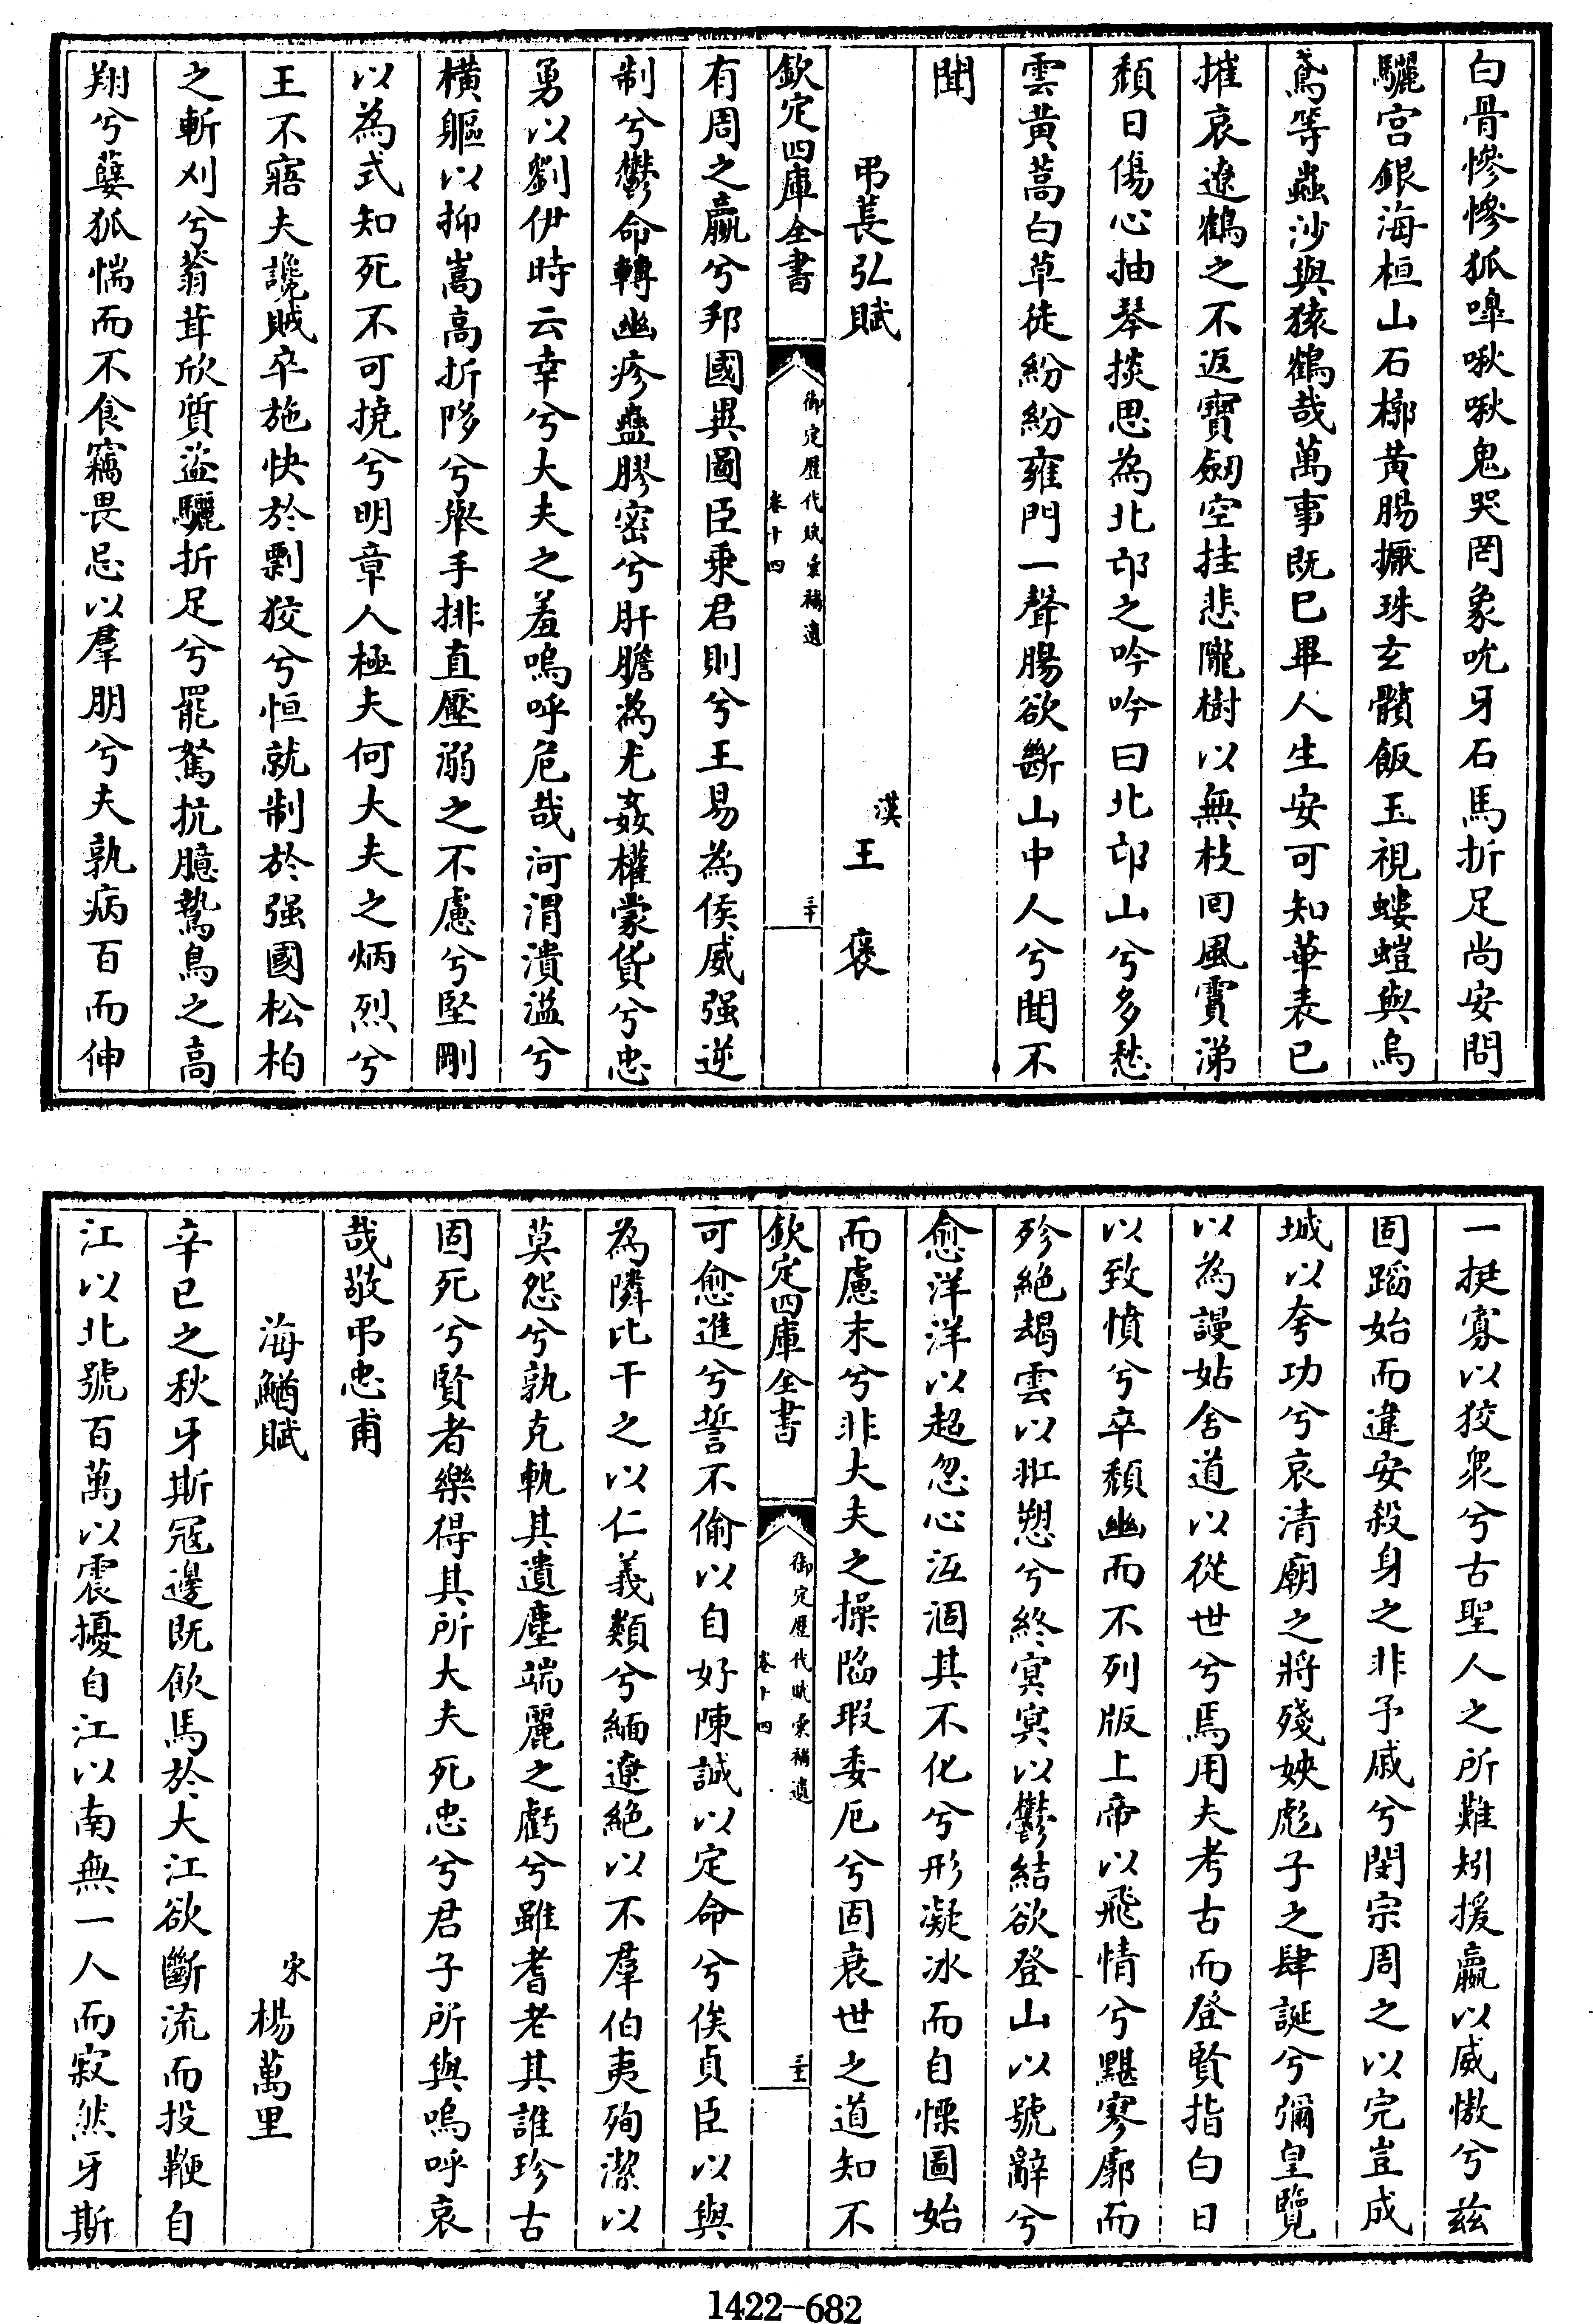 白骨慘慘狐嘷啾啾鬼哭罔象吮牙石馬折足尚安問
驪宫銀海桓山石槨黄腸擫珠玄髖飯玉視螻螘與烏
鳶等蟲沙與猿鶴哉萬事既已畢人生安可知華表已
摧哀遼鶴之不返寶劒空挂悲隴樹以無枝囘風霣涕
頽日傷心抽琴掞思為北邙之吟吟曰北邙山兮多愁
雲黄蒿白草徒紛紛雍門一聲腸欲斷山中人兮聞不
聞
弔萇弘賦 漢 王褒
欽定四庫全書 御定歷代賦彙補遺 卷十四 三十
有周之羸兮邦國異圖臣乘君則兮王易為侯威强逆
制兮鬱命轉幽疹蠱膠密兮肝膽為尤姦權蒙貨兮忠
勇以劉伊時云幸兮大夫之羞嗚呼危哉河渭潰溢兮
横軀以抑嵩高折陊兮舉手排直壓溺之不慮兮堅剛
以為式知死不可撓兮明章人極夫何大夫之炳烈兮
王不寤夫讒賊卒施快於剽狡兮恒就制於强國松柏
之斬刈兮蓊茸欣質盜驪折足兮罷駑抗臆鷙鳥之高
翔兮蘖狐惴而不食竊畏忌以羣朋兮夫孰病百而伸
一挺寡以狡衆兮古聖人之所難矧援羸以威慠兮兹
固蹈始而違安殺身之非予戚兮閔宗周之以完豈成
城以夸功兮哀清廟之將殘姎彪子之肆誕兮彌皇覽
以為謾姑舍道以從世兮焉用夫考古而登賢指白日
以致憤兮卒頽幽而不列版上帝以飛情兮黮寥廓而
殄絶朅雲以羾愬兮終冥冥以鬱結欲登山以號辭兮
愈洋洋以超忽心沍涸其不化兮形凝冰而自慄圖始
而慮末兮非大夫之操陷瑕委厄兮固衰世之道知不
欽定四庫全書 御定歷代賦彙補遺 卷十四 三十一
可愈進兮誓不偷以自好陳誠以定命兮俟貞臣以與
為隣比干之以仁義類兮緬遼絶以不羣伯夷殉潔以
莫怨兮孰克軌其遺塵端麗之虧兮雖耆老其誰珍古
固死兮賢者樂得其所大夫死忠兮君子所與嗚呼哀
哉敬弔忠甫
海鰌賦 宋 楊萬里
辛巳之秋牙斯冦邊既飲馬於大江欲斷流而投鞭自
江以北號百萬以震擾自江以南無一人而寂然牙斯
1422-682